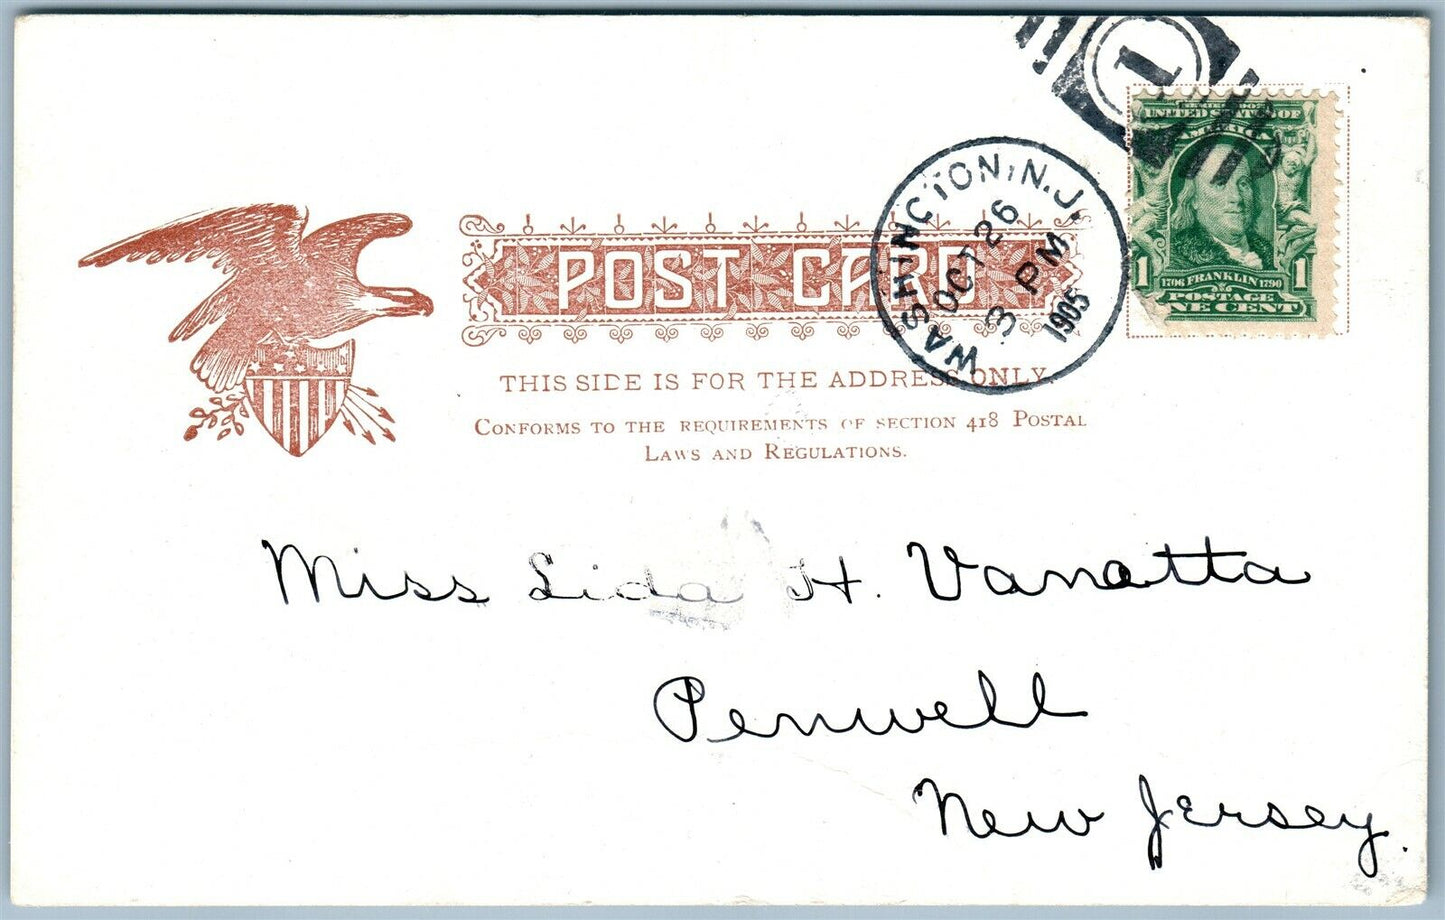 POST CARD
THIS SIDE IS FOR THE ADDRESS ONLY.
CONFORMS TO THE REQUIREMENTS OF SECTION 418 POSTAL
LAWS AND REGULATIONS.
WASHINGTON, N.J.
OCT 26
3 PM
1905
1
SERIES 1902
UNITED STATES OF
AMERICA
1 1706 FRANKLIN 1790 1
POSTAGE
ONE CENT
Miss Lida H. Vanatta
Penwell
New Jersey.